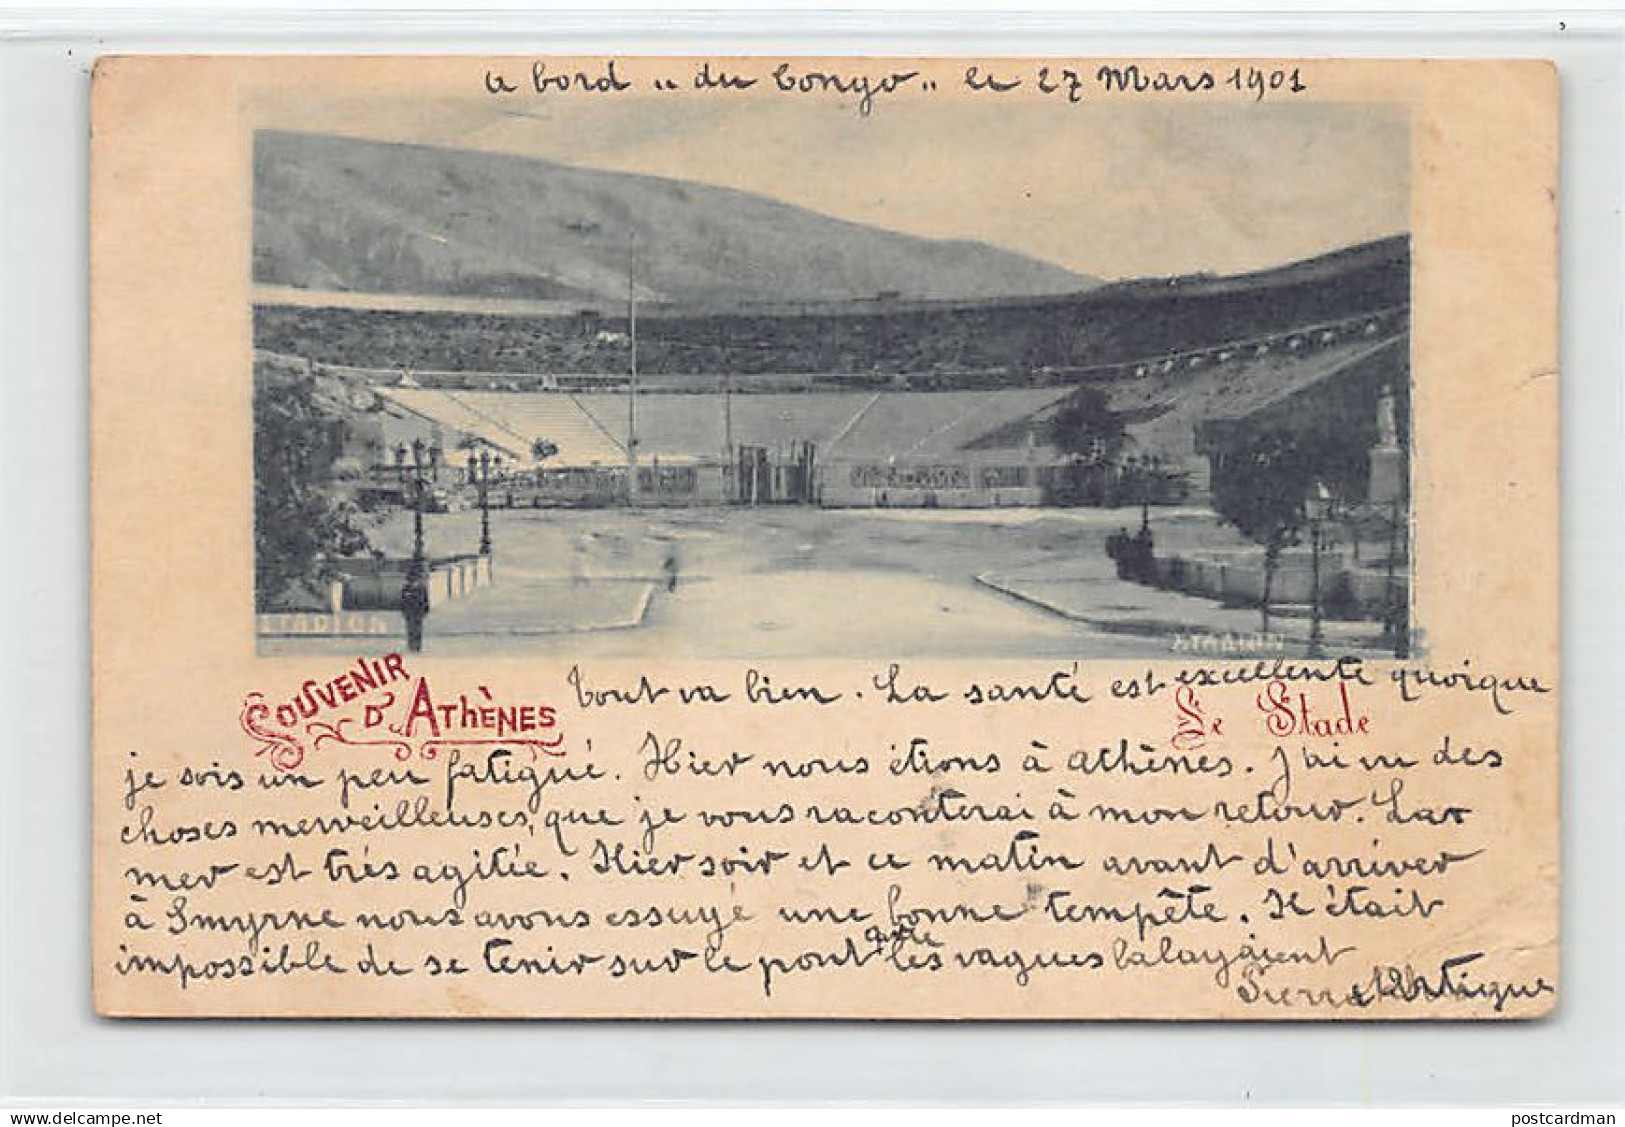 a bord „ du Congo „ le 27 Mars 1901
STADION
STADION
SOUVENIR D'ATHÈNES
Le Stade
Tout va bien. La santé est excellente quoique
je suis un peu fatigué. Hier nous étions à athènes. J'ai vu des
choses merveilleuses, que je vous raconterai à mon retour. La
mer est très agitée. Hier soir et ce matin avant d'arriver
à Smyrne nous avons essuyé une bonne tempête. Il était
impossible de se tenir sur le pont que les vagues balayaient
Pierre Artigue
www.delcampe.net
postcardman